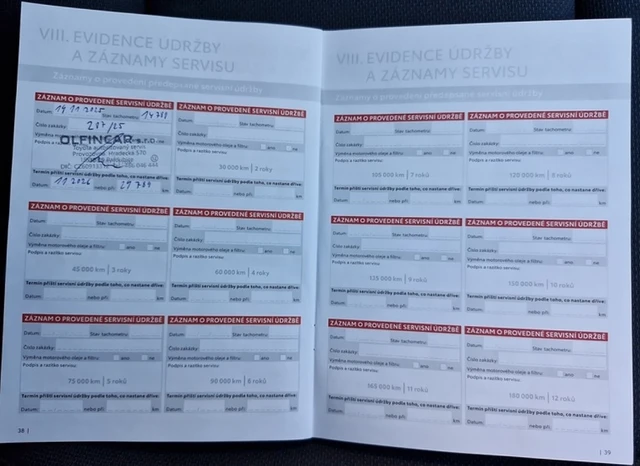 VIII. EVIDENCE ÚDRŽBY
A ZÁZNAMY SERVISU
Záznamy o provedení předepsané servisní údržby
ZÁZNAM O PROVEDENÉ SERVISNÍ ÚDRŽBĚ
Datum: 14 11 2025 Stav tachometru: 14 789
Číslo zakázky: 287/25
Výměna motorového oleje
OLFINCAR s.r.o.
Podpis a razítko
Toyota autorizovaný servis
Termín příští servisní údržby podle toho, co nastane dříve:
Datum: 11 2026 nebo při: 29 789 km
ZÁZNAM O PROVEDENÉ SERVISNÍ ÚDRŽBĚ
Datum: Stav tachometru:
Číslo zakázky:
Výměna motorového oleje a filtru: ano ne
Podpis a razítko servisu:
30 000 km | 2 roky
Termín příští servisní údržby podle toho, co nastane dříve:
Datum: nebo při: km
ZÁZNAM O PROVEDENÉ SERVISNÍ ÚDRŽBĚ
Datum: Stav tachometru:
Číslo zakázky:
Výměna motorového oleje a filtru: ano ne
Podpis a razítko servisu:
45 000 km | 3 roky
Termín příští servisní údržby podle toho, co nastane dříve:
Datum: nebo při: km
ZÁZNAM O PROVEDENÉ SERVISNÍ ÚDRŽBĚ
Datum: Stav tachometru:
Číslo zakázky:
Výměna motorového oleje a filtru: ano ne
Podpis a razítko servisu:
60 000 km | 4 roky
Termín příští servisní údržby podle toho, co nastane dříve:
Datum: nebo při: km
ZÁZNAM O PROVEDENÉ SERVISNÍ ÚDRŽBĚ
Datum: Stav tachometru:
Číslo zakázky:
Výměna motorového oleje a filtru: ano ne
Podpis a razítko servisu:
75 000 km | 5 roků
Termín příští servisní údržby podle toho, co nastane dříve:
Datum: nebo při: km
ZÁZNAM O PROVEDENÉ SERVISNÍ ÚDRŽBĚ
Datum: Stav tachometru:
Číslo zakázky:
Výměna motorového oleje a filtru: ano ne
Podpis a razítko servisu:
90 000 km | 6 roků
Termín příští servisní údržby podle toho, co nastane dříve:
Datum: nebo při: km
38 |
VIII. EVIDENCE ÚDRŽBY
A ZÁZNAMY SERVISU
Záznamy o provedení předepsané servisní údržby
ZÁZNAM O PROVEDENÉ SERVISNÍ ÚDRŽBĚ
Datum: Stav tachometru:
Číslo zakázky:
Výměna motorového oleje a filtru: ano ne
Podpis a razítko servisu:
105 000 km | 7 roků
Termín příští servisní údržby podle toho, co nastane dříve:
Datum: nebo při: km
ZÁZNAM O PROVEDENÉ SERVISNÍ ÚDRŽBĚ
Datum: Stav tachometru:
Číslo zakázky:
Výměna motorového oleje a filtru: ano ne
Podpis a razítko servisu:
120 000 km | 8 roků
Termín příští servisní údržby podle toho, co nastane dříve:
Datum: nebo při: km
ZÁZNAM O PROVEDENÉ SERVISNÍ ÚDRŽBĚ
Datum: Stav tachometru:
Číslo zakázky:
Výměna motorového oleje a filtru: ano ne
Podpis a razítko servisu:
135 000 km | 9 roků
Termín příští servisní údržby podle toho, co nastane dříve:
Datum: nebo při: km
ZÁZNAM O PROVEDENÉ SERVISNÍ ÚDRŽBĚ
Datum: Stav tachometru:
Číslo zakázky:
Výměna motorového oleje a filtru: ano ne
Podpis a razítko servisu:
150 000 km | 10 roků
Termín příští servisní údržby podle toho, co nastane dříve:
Datum: nebo při: km
ZÁZNAM O PROVEDENÉ SERVISNÍ ÚDRŽBĚ
Datum: Stav tachometru:
Číslo zakázky:
Výměna motorového oleje a filtru: ano ne
Podpis a razítko servisu:
165 000 km | 11 roků
Termín příští servisní údržby podle toho, co nastane dříve:
Datum: nebo při: km
ZÁZNAM O PROVEDENÉ SERVISNÍ ÚDRŽBĚ
Datum: Stav tachometru:
Číslo zakázky:
Výměna motorového oleje a filtru: ano ne
Podpis a razítko servisu:
180 000 km | 12 roků
Termín příští servisní údržby podle toho, co nastane dříve:
Datum: nebo při: km
| 39